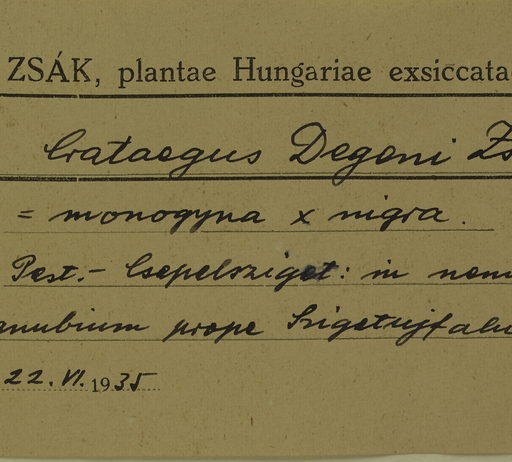 ZSÁK, plantae Hungariae exsiccatae
Crataegus Degeni Zs
= monogyna x nigra.
Pest.- Csepelsziget: in nem
anubium prope Szigetujfalu
22. VI. 1935